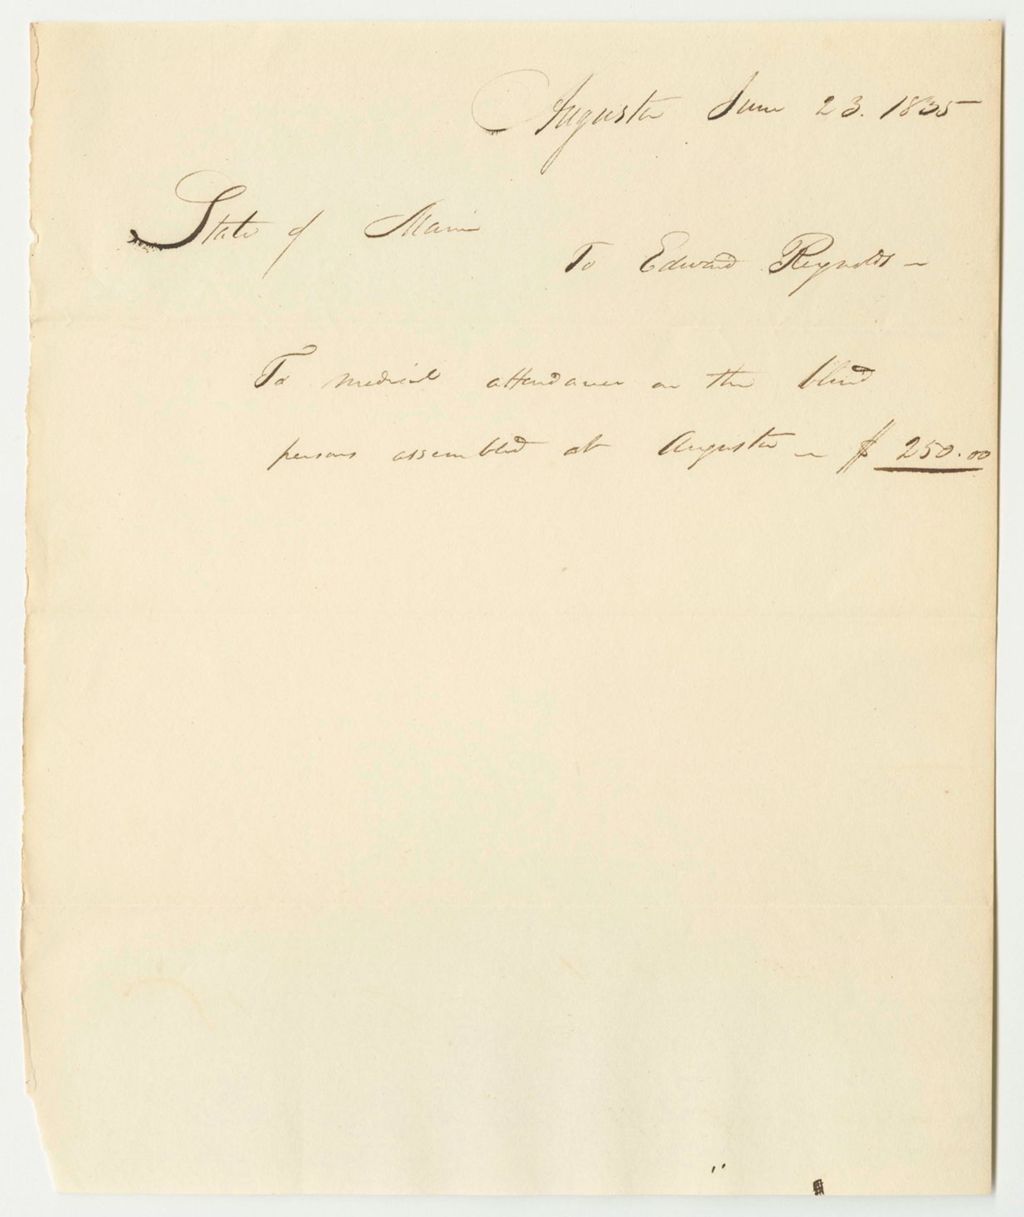 Augusta June 23. 1835
State of Maine
To Edward Reynolds —
To medical attendance on the blind
persons assembled at Augusta — $ 250.00